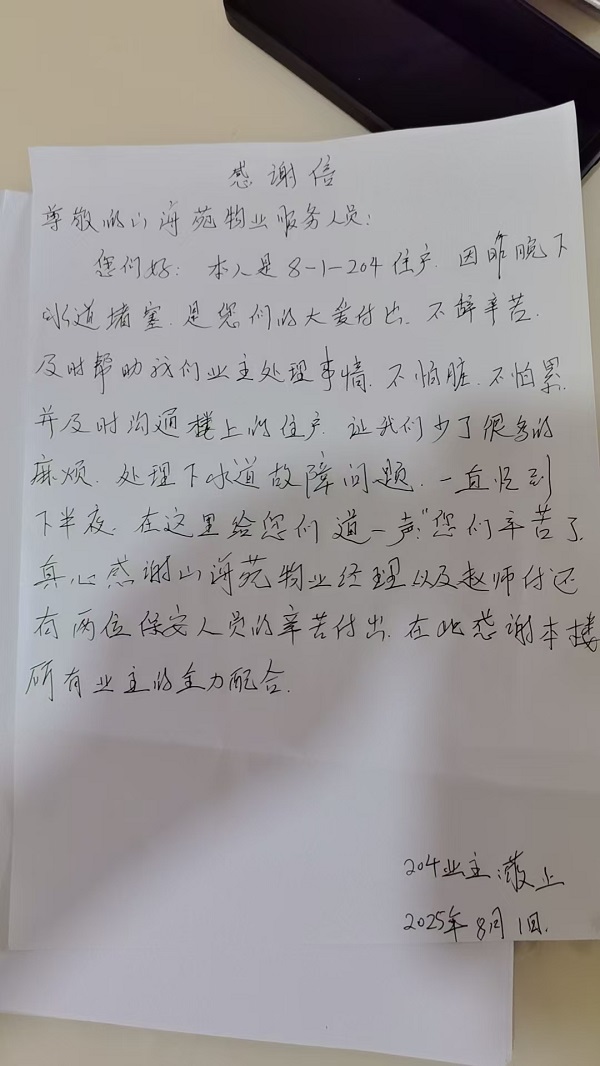 感谢信
尊敬的山海苑物业服务人员:
您们好: 本人是8-1-204住户. 因昨晚下
水道堵塞. 是您们的大爱付出. 不辞辛苦.
及时帮助我们业主处理事情. 不怕脏. 不怕累.
并及时沟通楼上的住户. 让我们少了很多的
麻烦. 处理下水道故障问题. 一直忙到
下半夜. 在这里给您们道一声:"您们辛苦了.
真心感谢山海苑物业经理以及赵师付还
有两位保安人员的辛苦付出. 在此感谢本楼
所有业主的全力配合.
204业主:敬上
2025年8月1日.